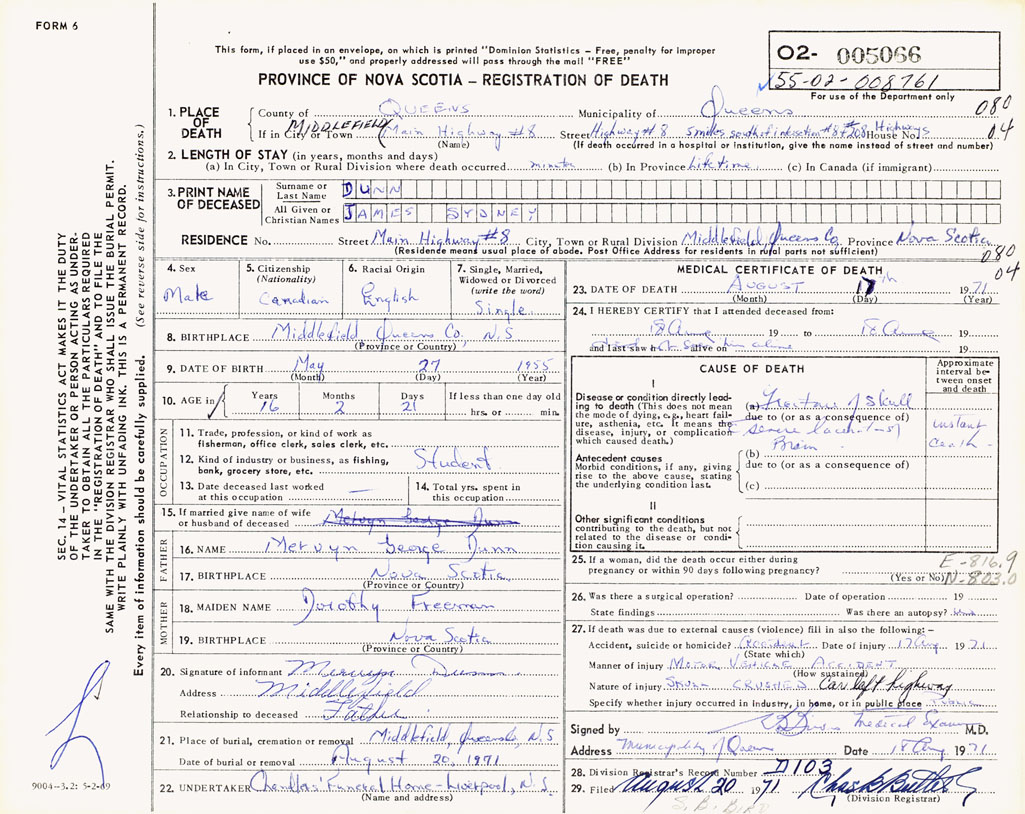 FORM 6
This form, if placed in an envelope, on which is printed "Dominion Statistics – Free, penalty for improper
use $50," and properly addressed will pass through the mail "FREE"
PROVINCE OF NOVA SCOTIA – REGISTRATION OF DEATH
02- 005066
55-02-008761
For use of the Department only
080
04
1. PLACE OF DEATH
County of QUEENS Municipality of Queens
If in City or Town MIDDLEFIELD Main Highway #8 Street Highway #8 5 miles south of #8 + 208 Highways House No.
(Name) (If death occurred in a hospital or institution, give the name instead of street and number)
2. LENGTH OF STAY (in years, months and days)
(a) In City, Town or Rural Division where death occurred minute (b) In Province Lifetime (c) In Canada (if immigrant)
3. PRINT NAME OF DECEASED
Surname or Last Name DUNN
All Given or Christian Names JAMES SYDNEY
RESIDENCE No. Street Main Highway #8 City, Town or Rural Division Middlefield, Queens Co. Province Nova Scotia
(Residence means usual place of abode. Post Office Address for residents in rural parts not sufficient)
080
04
4. Sex
Male
5. Citizenship (Nationality)
Canadian
6. Racial Origin
English
7. Single, Married, Widowed or Divorced (write the word)
Single
8. BIRTHPLACE Middlefield Queens Co, N.S
(Province or Country)
9. DATE OF BIRTH May 27 1955
(Month) (Day) (Year)
10. AGE in Years Months Days If less than one day old
16 2 21 hrs. or min.
OCCUPATION
11. Trade, profession, or kind of work as
fisherman, office clerk, sales clerk, etc.
12. Kind of industry or business, as fishing,
bank, grocery store, etc. Student
13. Date deceased last worked
at this occupation —
14. Total yrs. spent in
this occupation
15. If married give name of wife
or husband of deceased Melvyn George Dunn
FATHER
16. NAME Mervyn George Dunn
17. BIRTHPLACE Nova Scotia
(Province or Country)
MOTHER
18. MAIDEN NAME Dorothy Freeman
19. BIRTHPLACE Nova Scotia
(Province or Country)
20. Signature of informant Mervyn Dunn
Address Middlefield
Relationship to deceased Father
21. Place of burial, cremation or removal Middlefield, Queens Co, N.S
Date of burial or removal August 20, 1971
22. UNDERTAKER Chandlers' Funeral Home - Liverpool, N.S.
(Name and address)
MEDICAL CERTIFICATE OF DEATH
23. DATE OF DEATH AUGUST 17th 1971
(Month) (Day) (Year)
24. I HEREBY CERTIFY that I attended deceased from:
19 to 19
and last saw h alive on 19
CAUSE OF DEATH
Approximate interval between onset and death
I
Disease or condition directly leading
to death (This does not mean
the mode of dying, e.g., heart failure,
asthenia, etc. It means the
disease, injury, or complication
which caused death.)
(a) Fracture of Skull
due to (or as a consequence of)
severe Brain
instant death
Antecedent causes
Morbid conditions, if any, giving
rise to the above cause, stating
the underlying condition last.
(b)
due to (or as a consequence of)
(c)
II
Other significant conditions
contributing to the death, but not
related to the disease or condition
causing it.
25. If a woman, did the death occur either during
pregnancy or within 90 days following pregnancy?
(Yes or No)
E-816.9
N-803.0
26. Was there a surgical operation? Date of operation 19
State findings Was there an autopsy?
27. If death was due to external causes (violence) fill in also the following: –
Accident, suicide or homicide? Accident Date of injury 17 Aug 1971
(State which)
Manner of injury MOTOR VEHICLE ACCIDENT
(How sustained)
Nature of injury SKULL CRUSHED Car left highway
Specify whether injury occurred in industry, in home, or in public place
Signed by Medical M.D.
Address Municipality of Queens Date 18 Aug 1971
28. Division Registrar's Record Number D103
29. Filed August 20 1971 Chas K Butler
(Division Registrar)
S. B. BIRD
SEC. 14 – VITAL STATISTICS ACT MAKES IT THE DUTY
OF THE UNDERTAKER OR PERSON ACTING AS UNDERTAKER
TO OBTAIN ALL THE PARTICULARS REQUIRED
IN THE "REGISTRATION OF DEATH" AND TO FILE THE
SAME WITH THE DIVISION REGISTRAR WHO SHALL ISSUE THE BURIAL PERMIT.
WRITE PLAINLY WITH UNFADING INK. THIS IS A PERMANENT RECORD.
Every item of information should be carefully supplied. (See reverse side for instructions.)
9004-3.2: 5-2-69